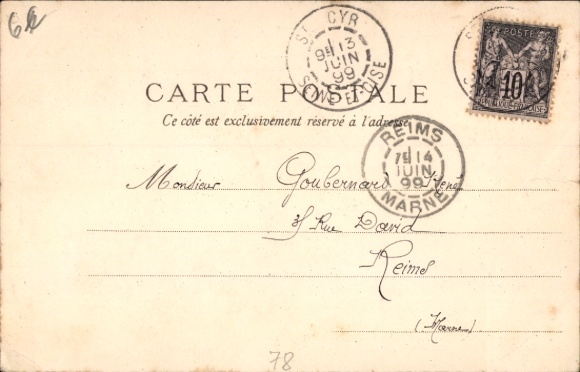 6k
ST CYR
9E 13
JUIN
99
SEINE ET OISE
POSTE
10
CARTE POSTALE
Ce côté est exclusivement réservé à l'adresse
REIMS
7E 14
JUIN
99
MARNE
Monsieur Goubernard René
Rue David
Reims
(Marne)
78